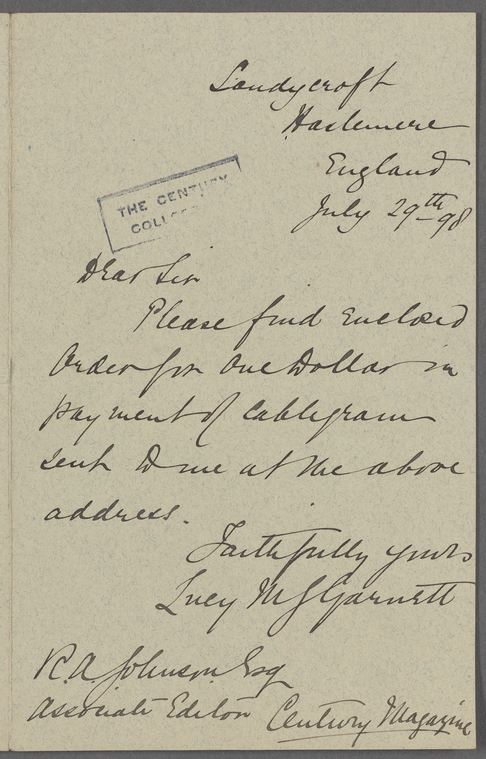 Sandycroft
Haslemere
England
July 29th 98
THE CENTURY
COLLEC
Dear Sir
Please find Enclosed
Order for One Dollar in
payment of Cablegram
sent to me at the above
address.
Faithfully yours
Lucy M J Garnett
R. A Johnson Esq
Associate Editor Century Magazine